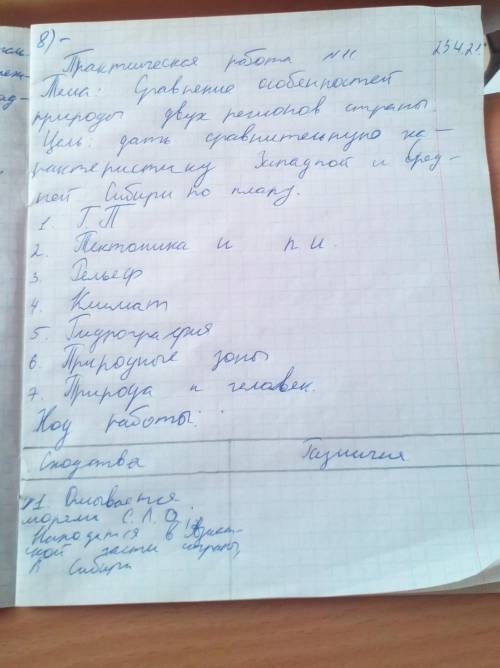 8) -
Практическая работа №11 23.4.21
Тема: Сравнение особенностей
природы двух регионов страны.
Цель: дать сравнительную ха-
рактеристику Западной и Сред-
ней Сибири по плану.
1. ГП
2. Тектоника и п.и.
3. Рельеф
4. Климат
5. Гидрография
6. Природные зоны
7. Природа и человек.
Ход работы:
Сходства Различия
1 Омывается
морями С.Л.О.
Находятся в Азиат-
ской части страны,
в Сибири